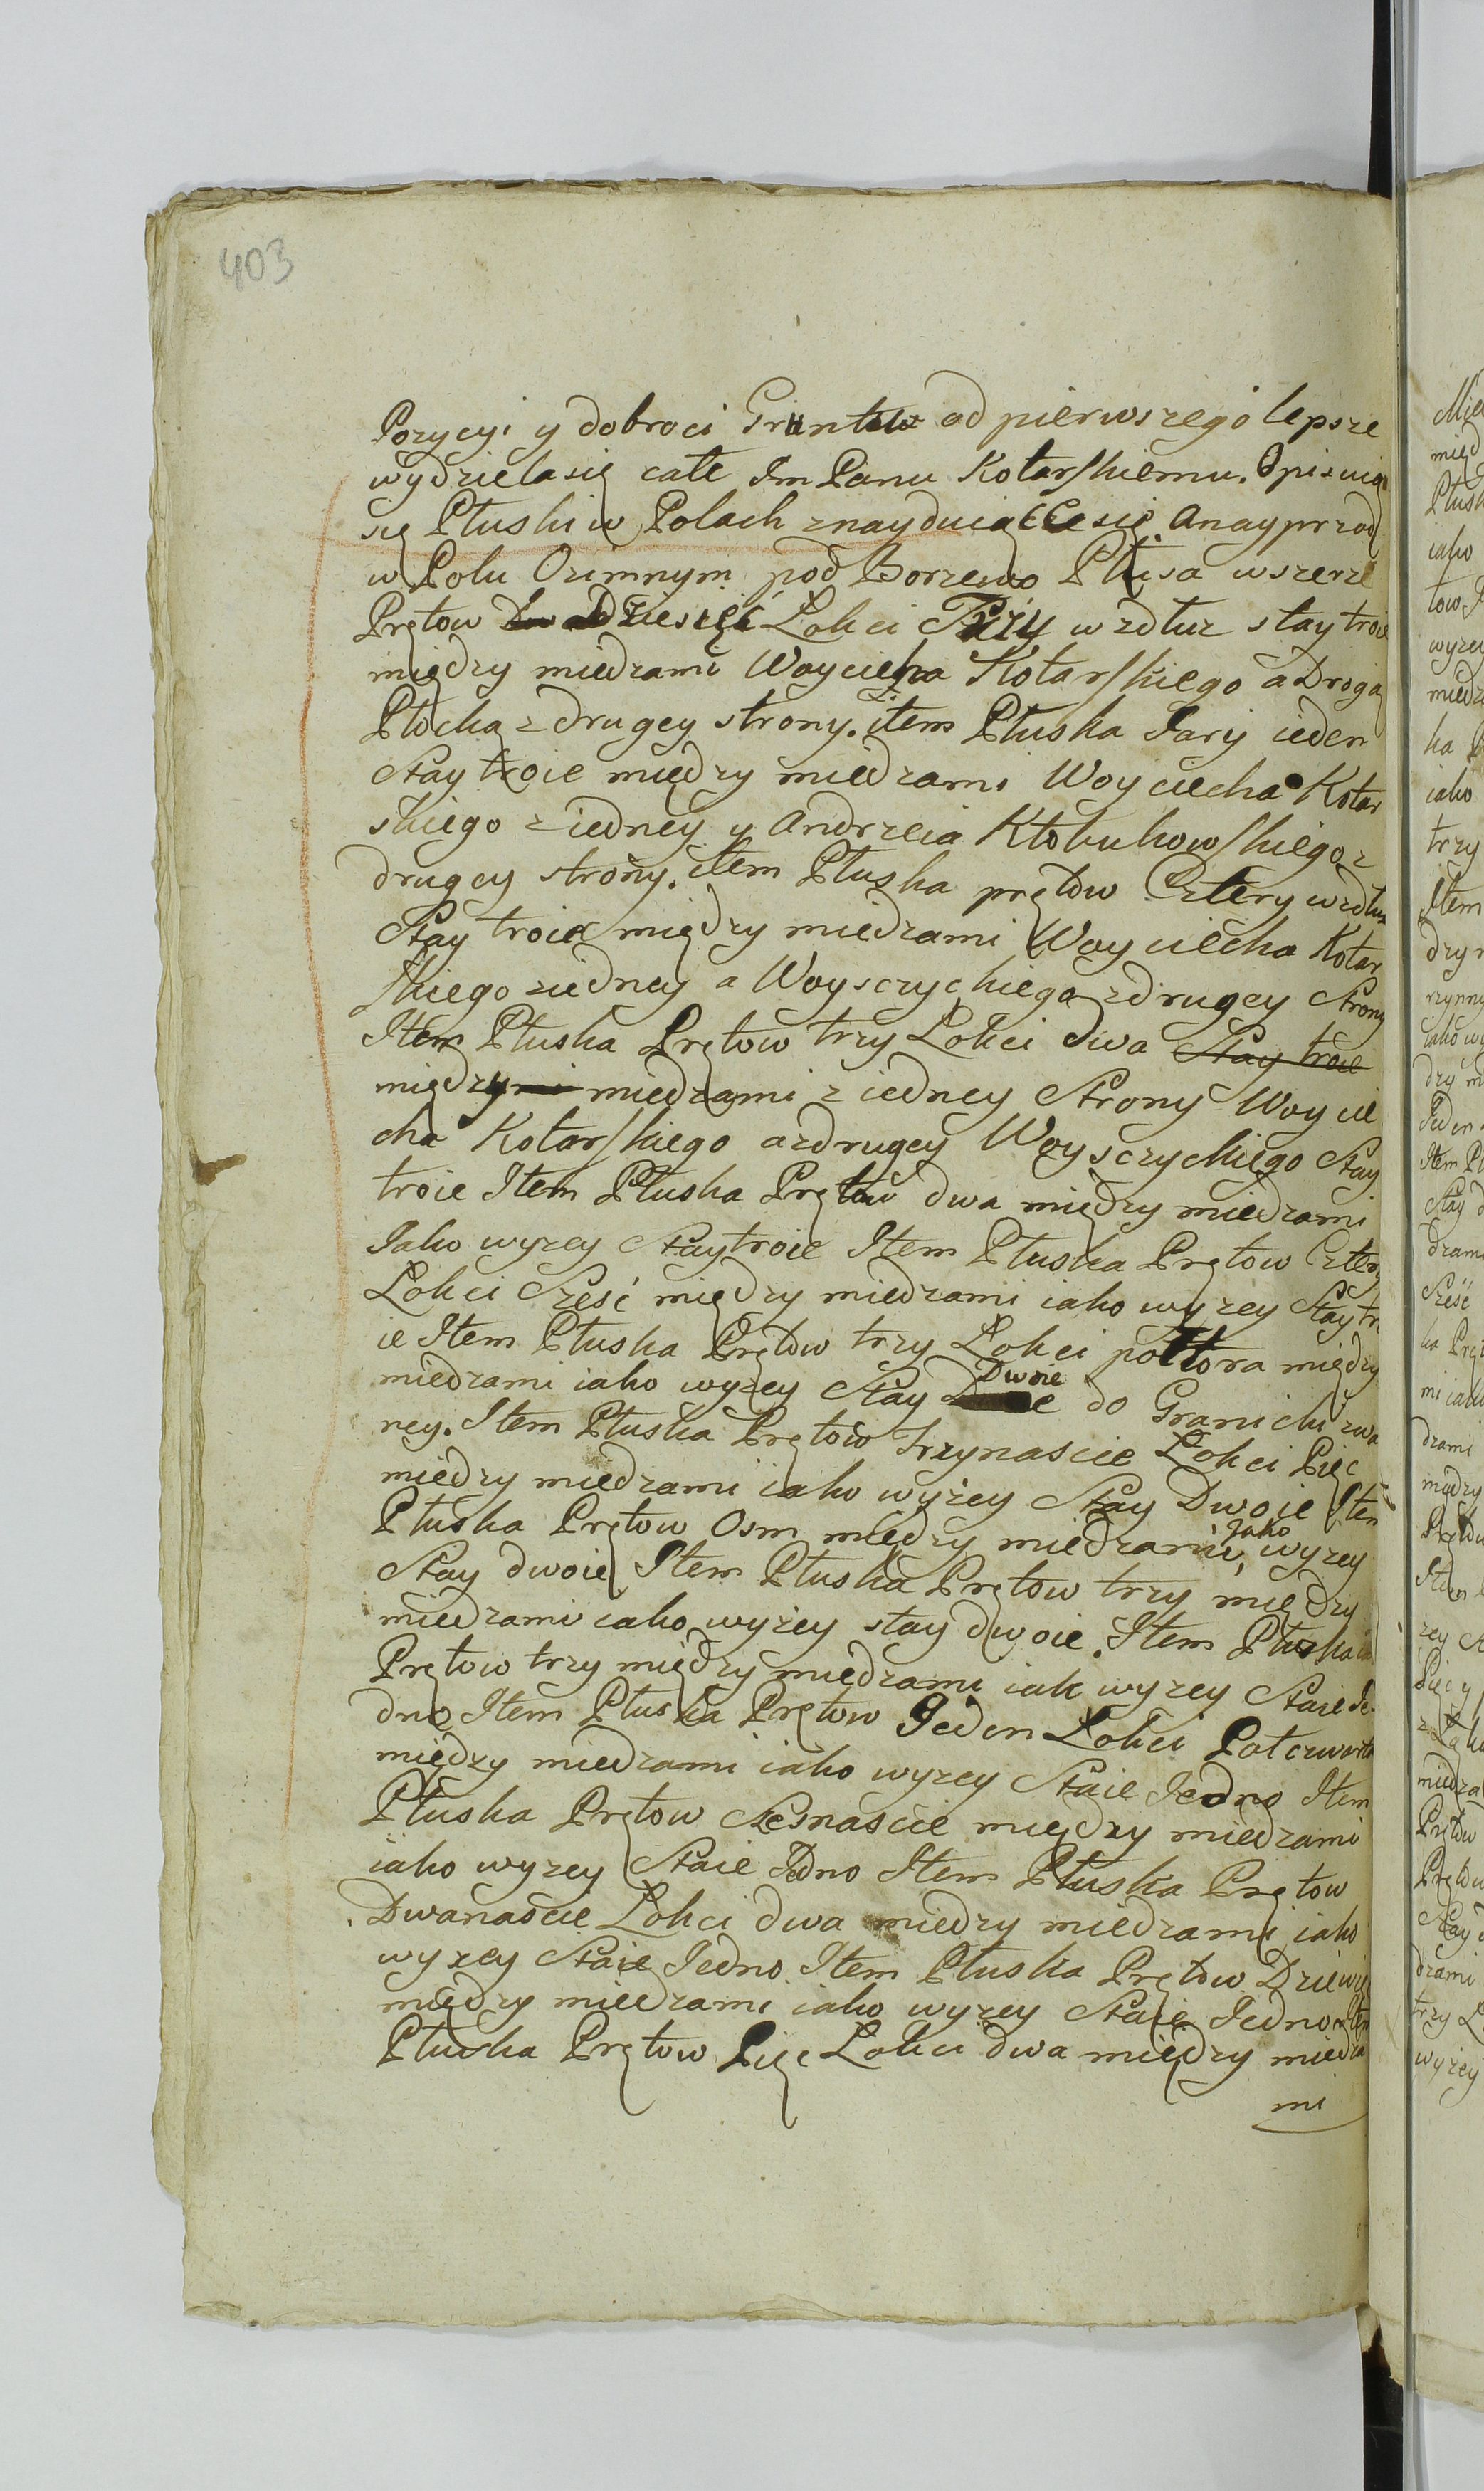 403
Pozycyi y dobroci Gruntow od pierwszego lepsze
wydziela się cale Im Panu Kotarskiemu. Opisuią
się Płuski w Polach znayduiące się. Anayprzod
w Polu Ozimnym pod Borzewo Płusa wszerz
Prętow Dziesięć Łokci Trzy wzdłuz stay troie
między miedzami Woyciecha Kotarskiego a Drogą
Płocką z drugey strony. item Płuska Jary ieden
Stay troie między miedzami Woyciecha Kotar
skiego ziedney y Andrzeia Kłobukowskiego z
drugey strony. item Płuska prętow Cztery wzdłuz
Stay troie między miedzami Woyciecha Kotar
skiego ziedney a Woyscyckiego zdrugey Strony
Item Płuska Prętow trzy Łokci dwa Stay troie
między miedzami z iedney Strony Woycie
cha Kotarskiego azdrugey Woysczyckiego Stay
troie Item Płuska Prętow dwa między miedzami
Jako wyzey Stay troie Item Płuska Prętow Cztery
Łokci Sześć między miedzami iako wyzey Stay tro
ie Item Płuska Prętow trzy Łokci połtora między
miedzami iako wyzey Stay Dwoie do Granicki zwa
ney. Item Płuska Prętow Trzynascie Łokci Pięc
miedzy miedzami iako wyżey Stay Dwoie Item
Płuska Prętow Osm miedzy miedzami Jako wyzey
Stay dwoie Item Płuska Prętow trzy między
miedzami iako wyżey stay dwoie. Item Płuska
Prętow trzy między miedzami iak wyzey Staie Je-
dno Item Płuska Prętow Jeden Łokci Połczwarta
między miedzami iako wyzey Staie Jedno Item
Płuska Prętow Szesnascie między miedzami
iako wyzey Staie Jedno Item Płuska Prętow
Dwanaście Łokci dwa miedzy miedzami iako
wyzey Staie Jedno. Item Płuska Prętow Dziewięc
między miedzami iako wyzey Staie Jedno Item
Płuska Prętow Pięc Łokci dwa między miedza
mi